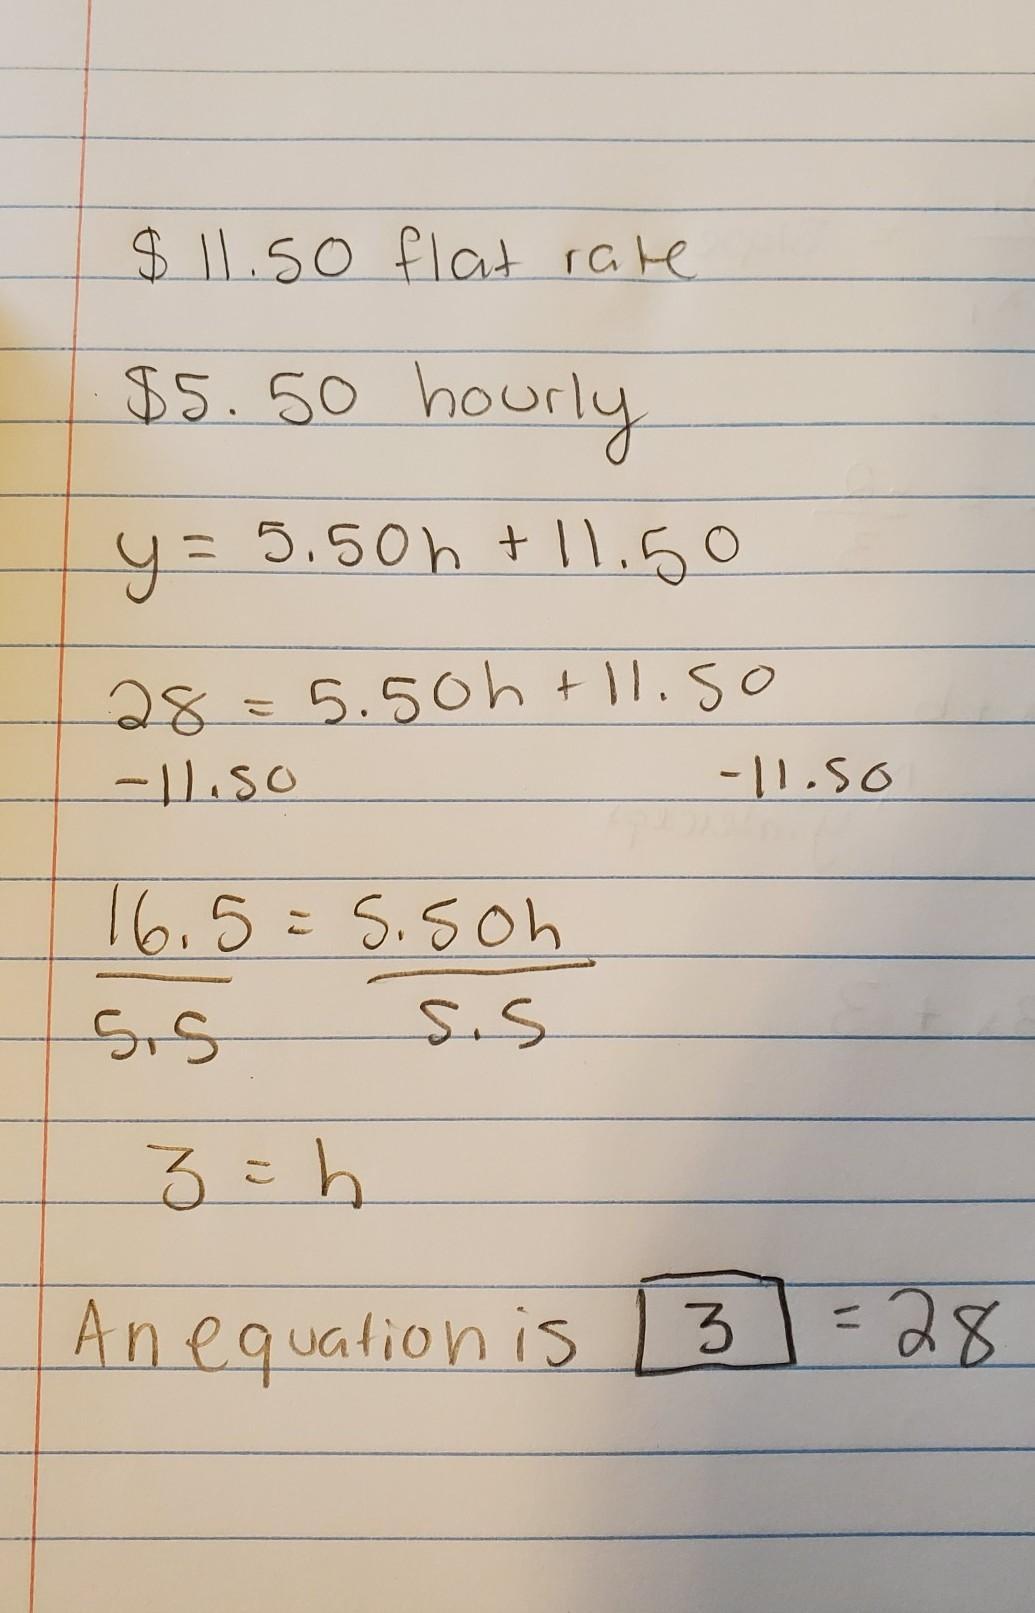 $11.50 flat rate
$5.50 hourly
y = 5.50h + 11.50
28 = 5.50h + 11.50
-11.50 -11.50
16.5 = 5.50h
5.5 5.5
3 = h
An equation is 3 = 28